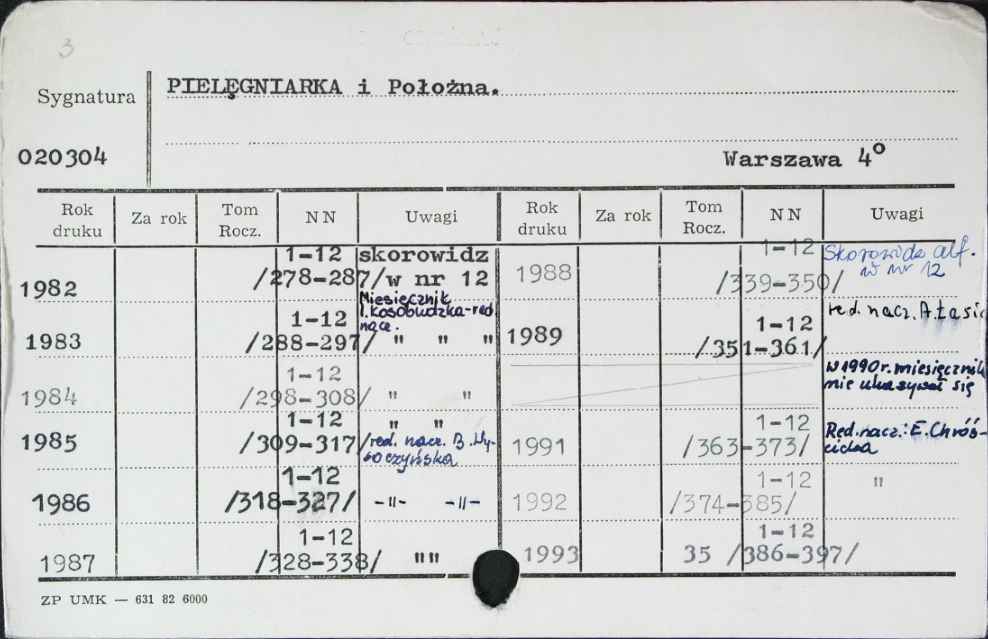 3
Sygnatura PIELĘGNIARKA i Położna.
020304 Warszawa 4°
Rok druku Za rok Tom Rocz. NN Uwagi Rok druku Za rok Tom Rocz. NN Uwagi
1982 1-12 /278-287/ skorowidz w nr 12
Miesięcznik
I. Kosobudzka-red
nacz.
1983 1-12 /288-297/ " " "
1984 1-12 /298-308/ " "
1985 1-12 /309-317/ " "
red. nacz. B. Wy-
soczyńska
1986 1-12 /318-327/ -"- -"-
1987 1-12 /328-338/ ""
1988 1-12 /339-350/ Skorowidz alf.
w nr 12
1989 1-12 /351-361/ red. nacz. A. Łasic
W 1990 r. miesięcznik
nie ukazywał się
1991 1-12 /363-373/ Red. nacz.: E. Chróś-
cicka
1992 /374-385/ "
1993 35 1-12 /386-397/
ZP UMK — 631 82 6000